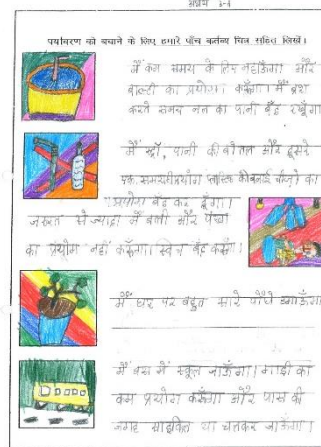 अभ्यास 3-4
पर्यावरण को बचाने के लिए हमारे पाँच कर्तव्य चित्र सहित लिखें।
मैं कम समय के लिए नहाऊँगा और
बाल्टी का प्रयोग करूँगा। मैं ब्रश
करते समय नल का पानी बंद रखूँगा
मैं स्ट्रॉ, पानी की बोतल और दूसरे
एक समय प्रयोग प्लास्टिक की बनाई चीज़ों का
प्रयोग बंद कर दूँगा।
जरूरत से ज्यादा मैं बत्ती और पंखा
का प्रयोग नहीं करूँगा। स्विच बंद करूँगा।
मैं घर पर बहुत सारे पौधे उगाऊँगा
मैं बस में स्कूल जाऊँगा। गाड़ी का
कम प्रयोग करूँगा और पास की
जगह साइकिल या चलकर जाऊँगा।